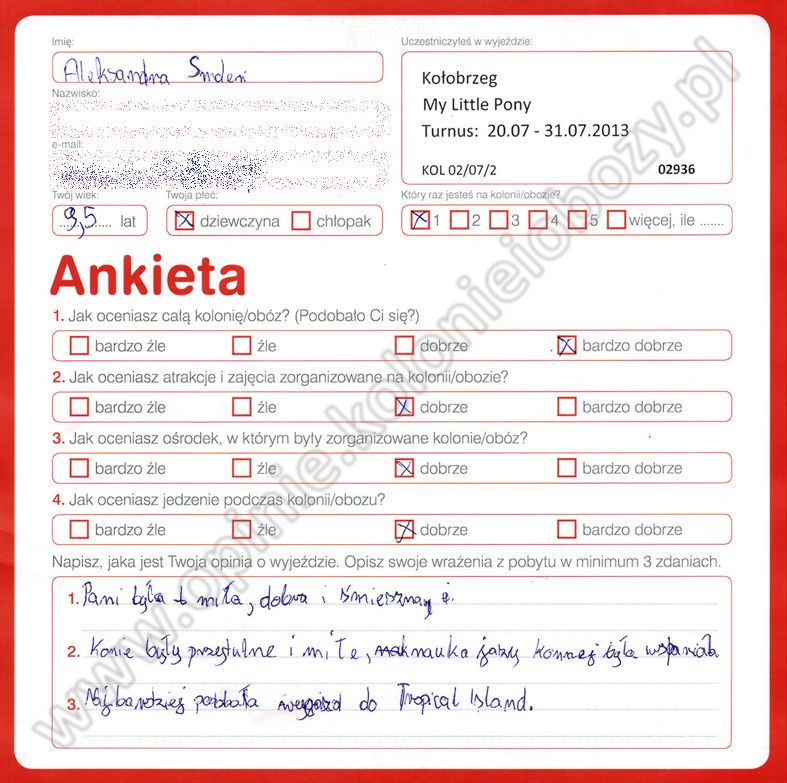 Imię:
Aleksandra
Nazwisko:
e-mail:
Twój wiek:
9,5 lat
Twoja płeć:
dziewczyna chłopak
Uczestniczyłeś w wyjeździe:
Kołobrzeg
My Little Pony
Turnus: 20.07 - 31.07.2013
KOL 02/07/2 02936
Który raz jesteś na kolonii/obozie?
1 2 3 4 5 więcej, ile .......
Ankieta
1. Jak oceniasz całą kolonię/obóz? (Podobało Ci się?)
bardzo źle źle dobrze bardzo dobrze
2. Jak oceniasz atrakcje i zajęcia zorganizowane na kolonii/obozie?
bardzo źle źle dobrze bardzo dobrze
3. Jak oceniasz ośrodek, w którym były zorganizowane kolonie/obóz?
bardzo źle źle dobrze bardzo dobrze
4. Jak oceniasz jedzenie podczas kolonii/obozu?
bardzo źle źle dobrze bardzo dobrze
Napisz, jaka jest Twoja opinia o wyjeździe. Opisz swoje wrażenia z pobytu w minimum 3 zdaniach.
1. Pani była miła, dobra i
2. Konie były przytulne i miłe, nauka jazdy konnej była wspaniała
3. Najbardziej podobała do Tropical Island.
www.opinie.kolonieiobozy.pl